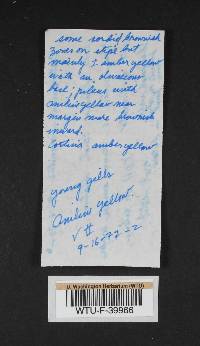 some sordid brownish
zones on stipe but
mostly ± amber yellow
with an olivaceous
feel; pileus with
aniline yellow near
margin more brownish
inward.
Cortina amber yellow
young gills
Aniline yellow.
V #
9-16-77-2
U. Washington Herbarium (WTU)
WTU-F-39966